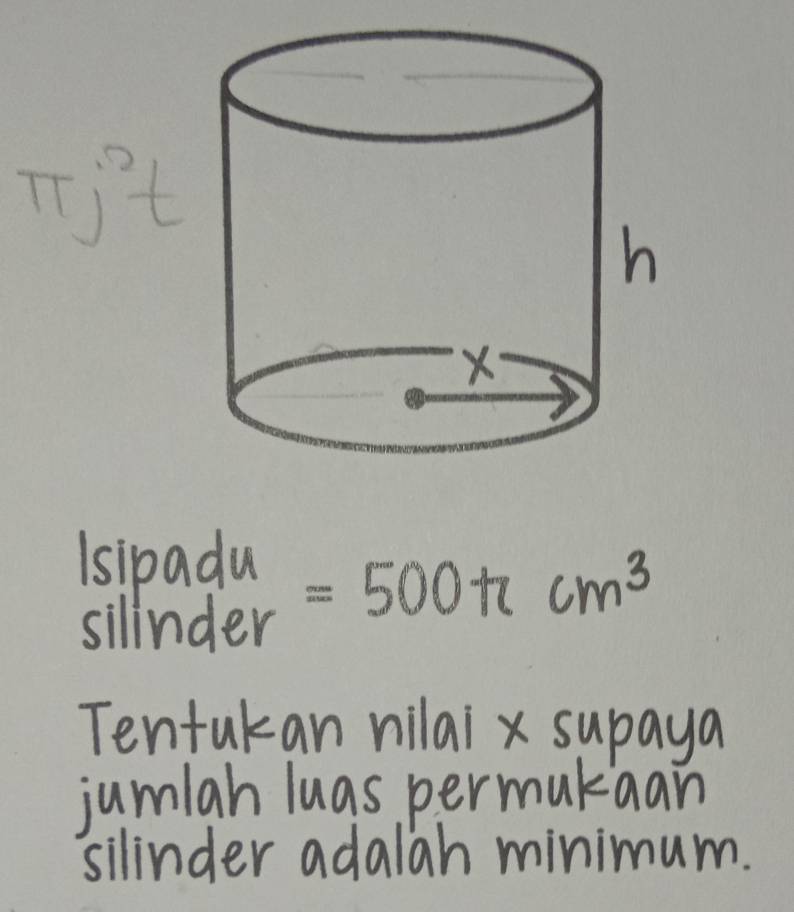 πj²t
h
x
Isipadu
silinder = 500π cm³
Tentukan nilai x supaya
jumlah luas permukaan
silinder adalah minimum.